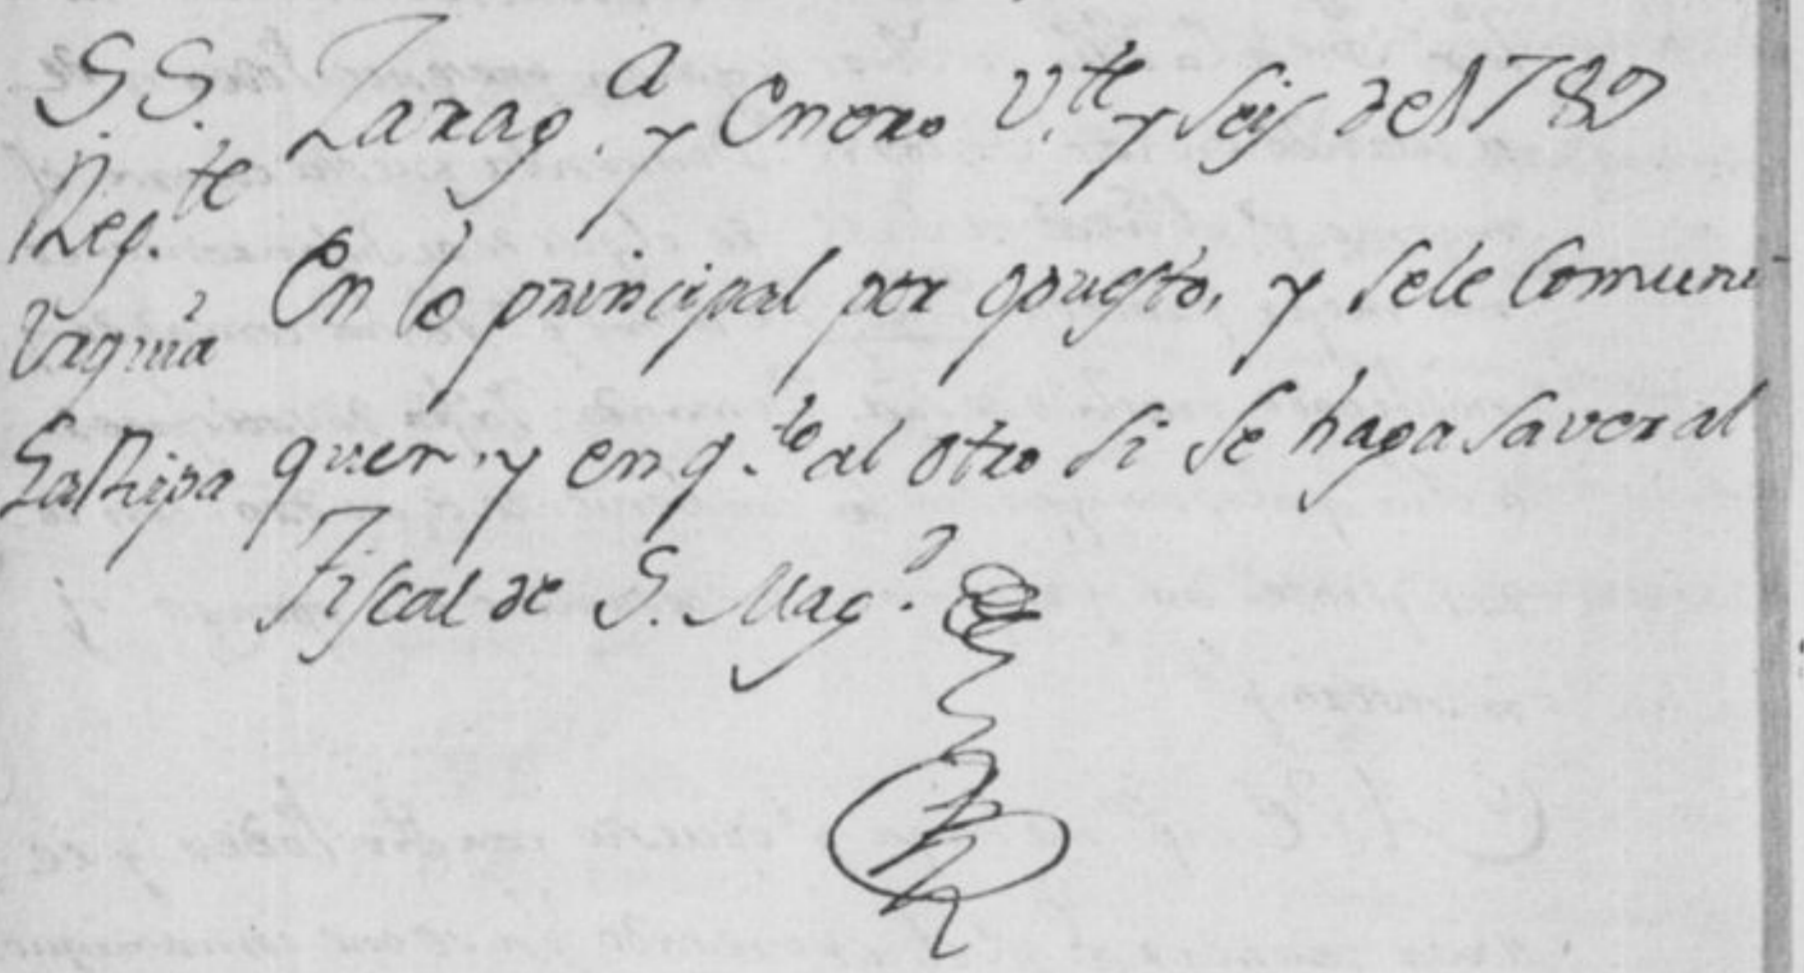 S.S.
Reg.te
Urquia
LaRipa
Zarag.a y Enero V.te y seis de 1789
En lo principal por opuesto, y sele Comuni
quen y en q.to al otro si se haga saver al
Fiscal de S. Mag.d